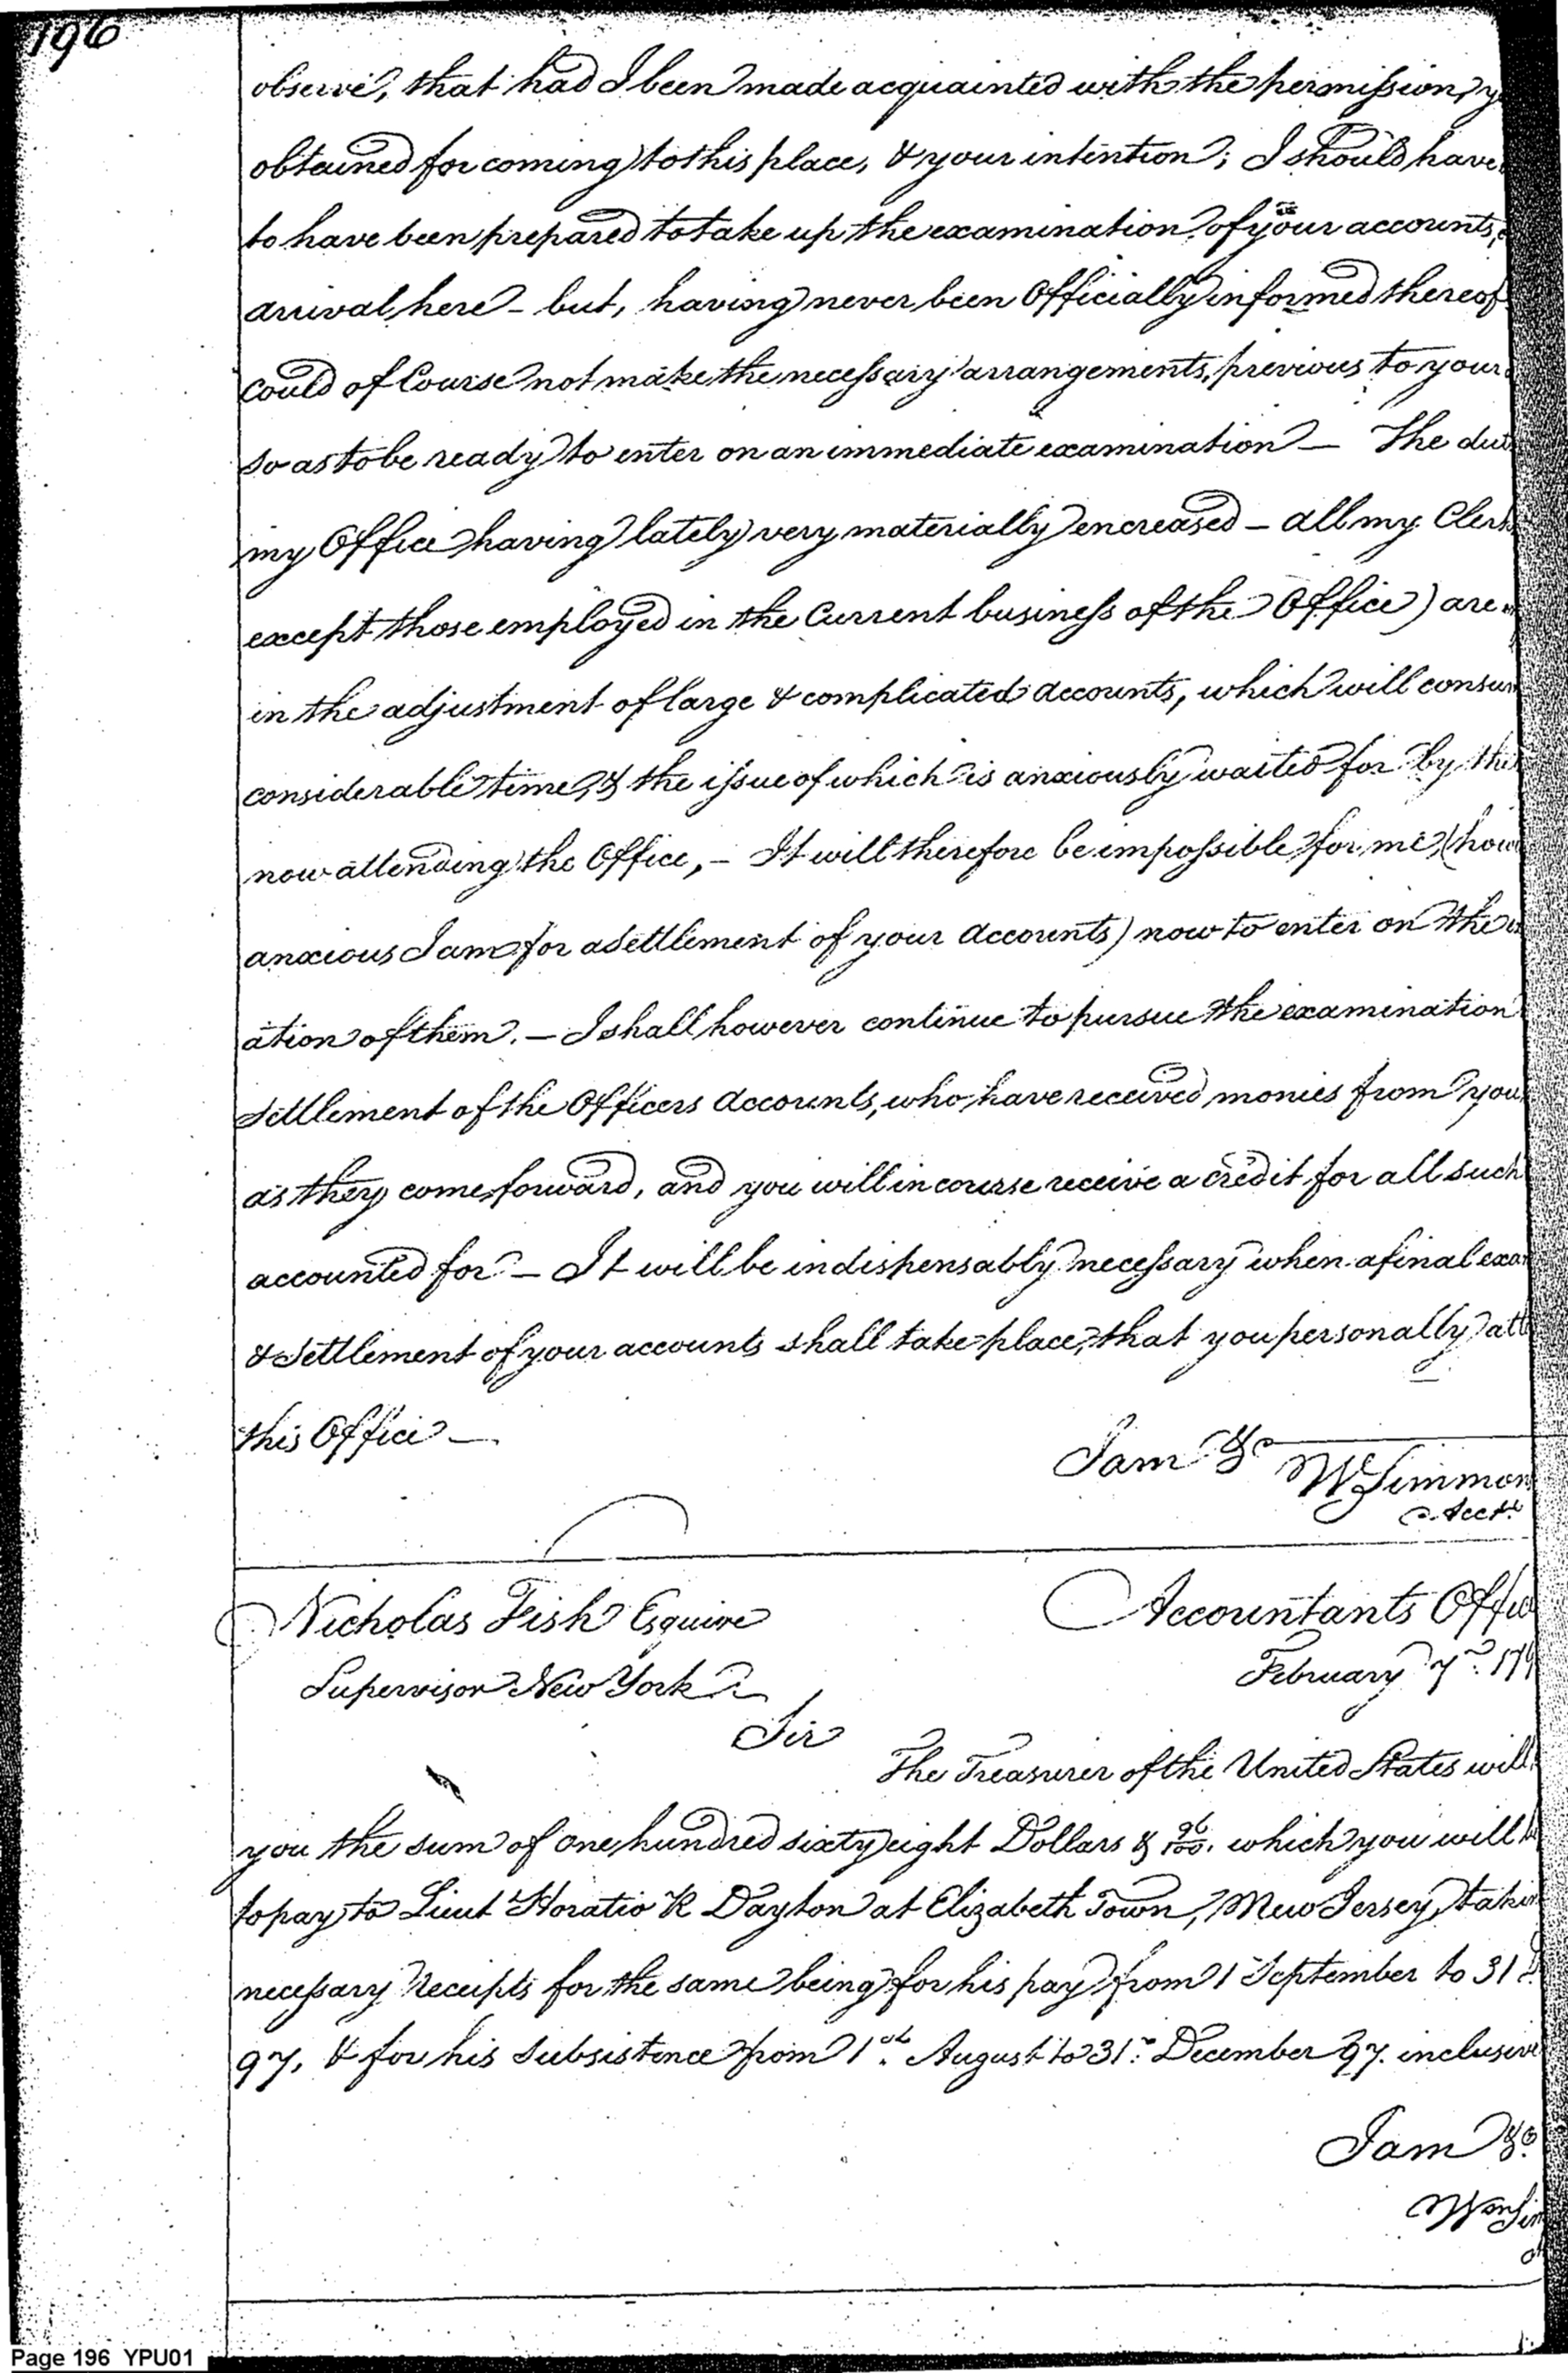 196
observe, that had I been made acquainted with the permission, y
obtained for coming to this place, & your intention; I should have
to have been prepared to take up the examination of your accounts,
arrival here - but, having never been Officially informed thereof
could of Course not make the necessary arrangements, previous to your
so as to be ready to enter on an immediate examination — The dut
my Office having lately very materially encreased — all my Clerk
except those employed in the Current business of the Office) are
in the adjustment of large & complicated accounts, which will consum
considerable time, & the issue of which is anxiously waited for by the
now attending the Office, - It will therefore be impossible for me, (how
anxious I am for a settlement of your accounts) now to enter on the
ation of them. — I shall however continue to pursue the examination
settlement of the Officers accounts, who have received monies from you
as they come forward, and you will in course receive a credit for all such
accounted for — It will be indispensably necessary when a final exa
& settlement of your accounts shall take place, that you personally att
this Office —
I am &c
Wm Simmon
Acct.
Nicholas Fish Esquire
Accountants Offic
Supervisor New York
February 7th. 179
Sir
The Treasurer of the United States will
you the sum of one hundred sixty eight Dollars & 96/100. which you will
to pay to Lieut Horatio R Dayton at Elizabeth Town, New Jersey, takin
necessary Receipts for the same being for his pay from 1 September to 31
97, & for his subsistence from 1st. August to 31st. December 97. inclusive
I am &c.
Wm Sim
Page 196 YPU01